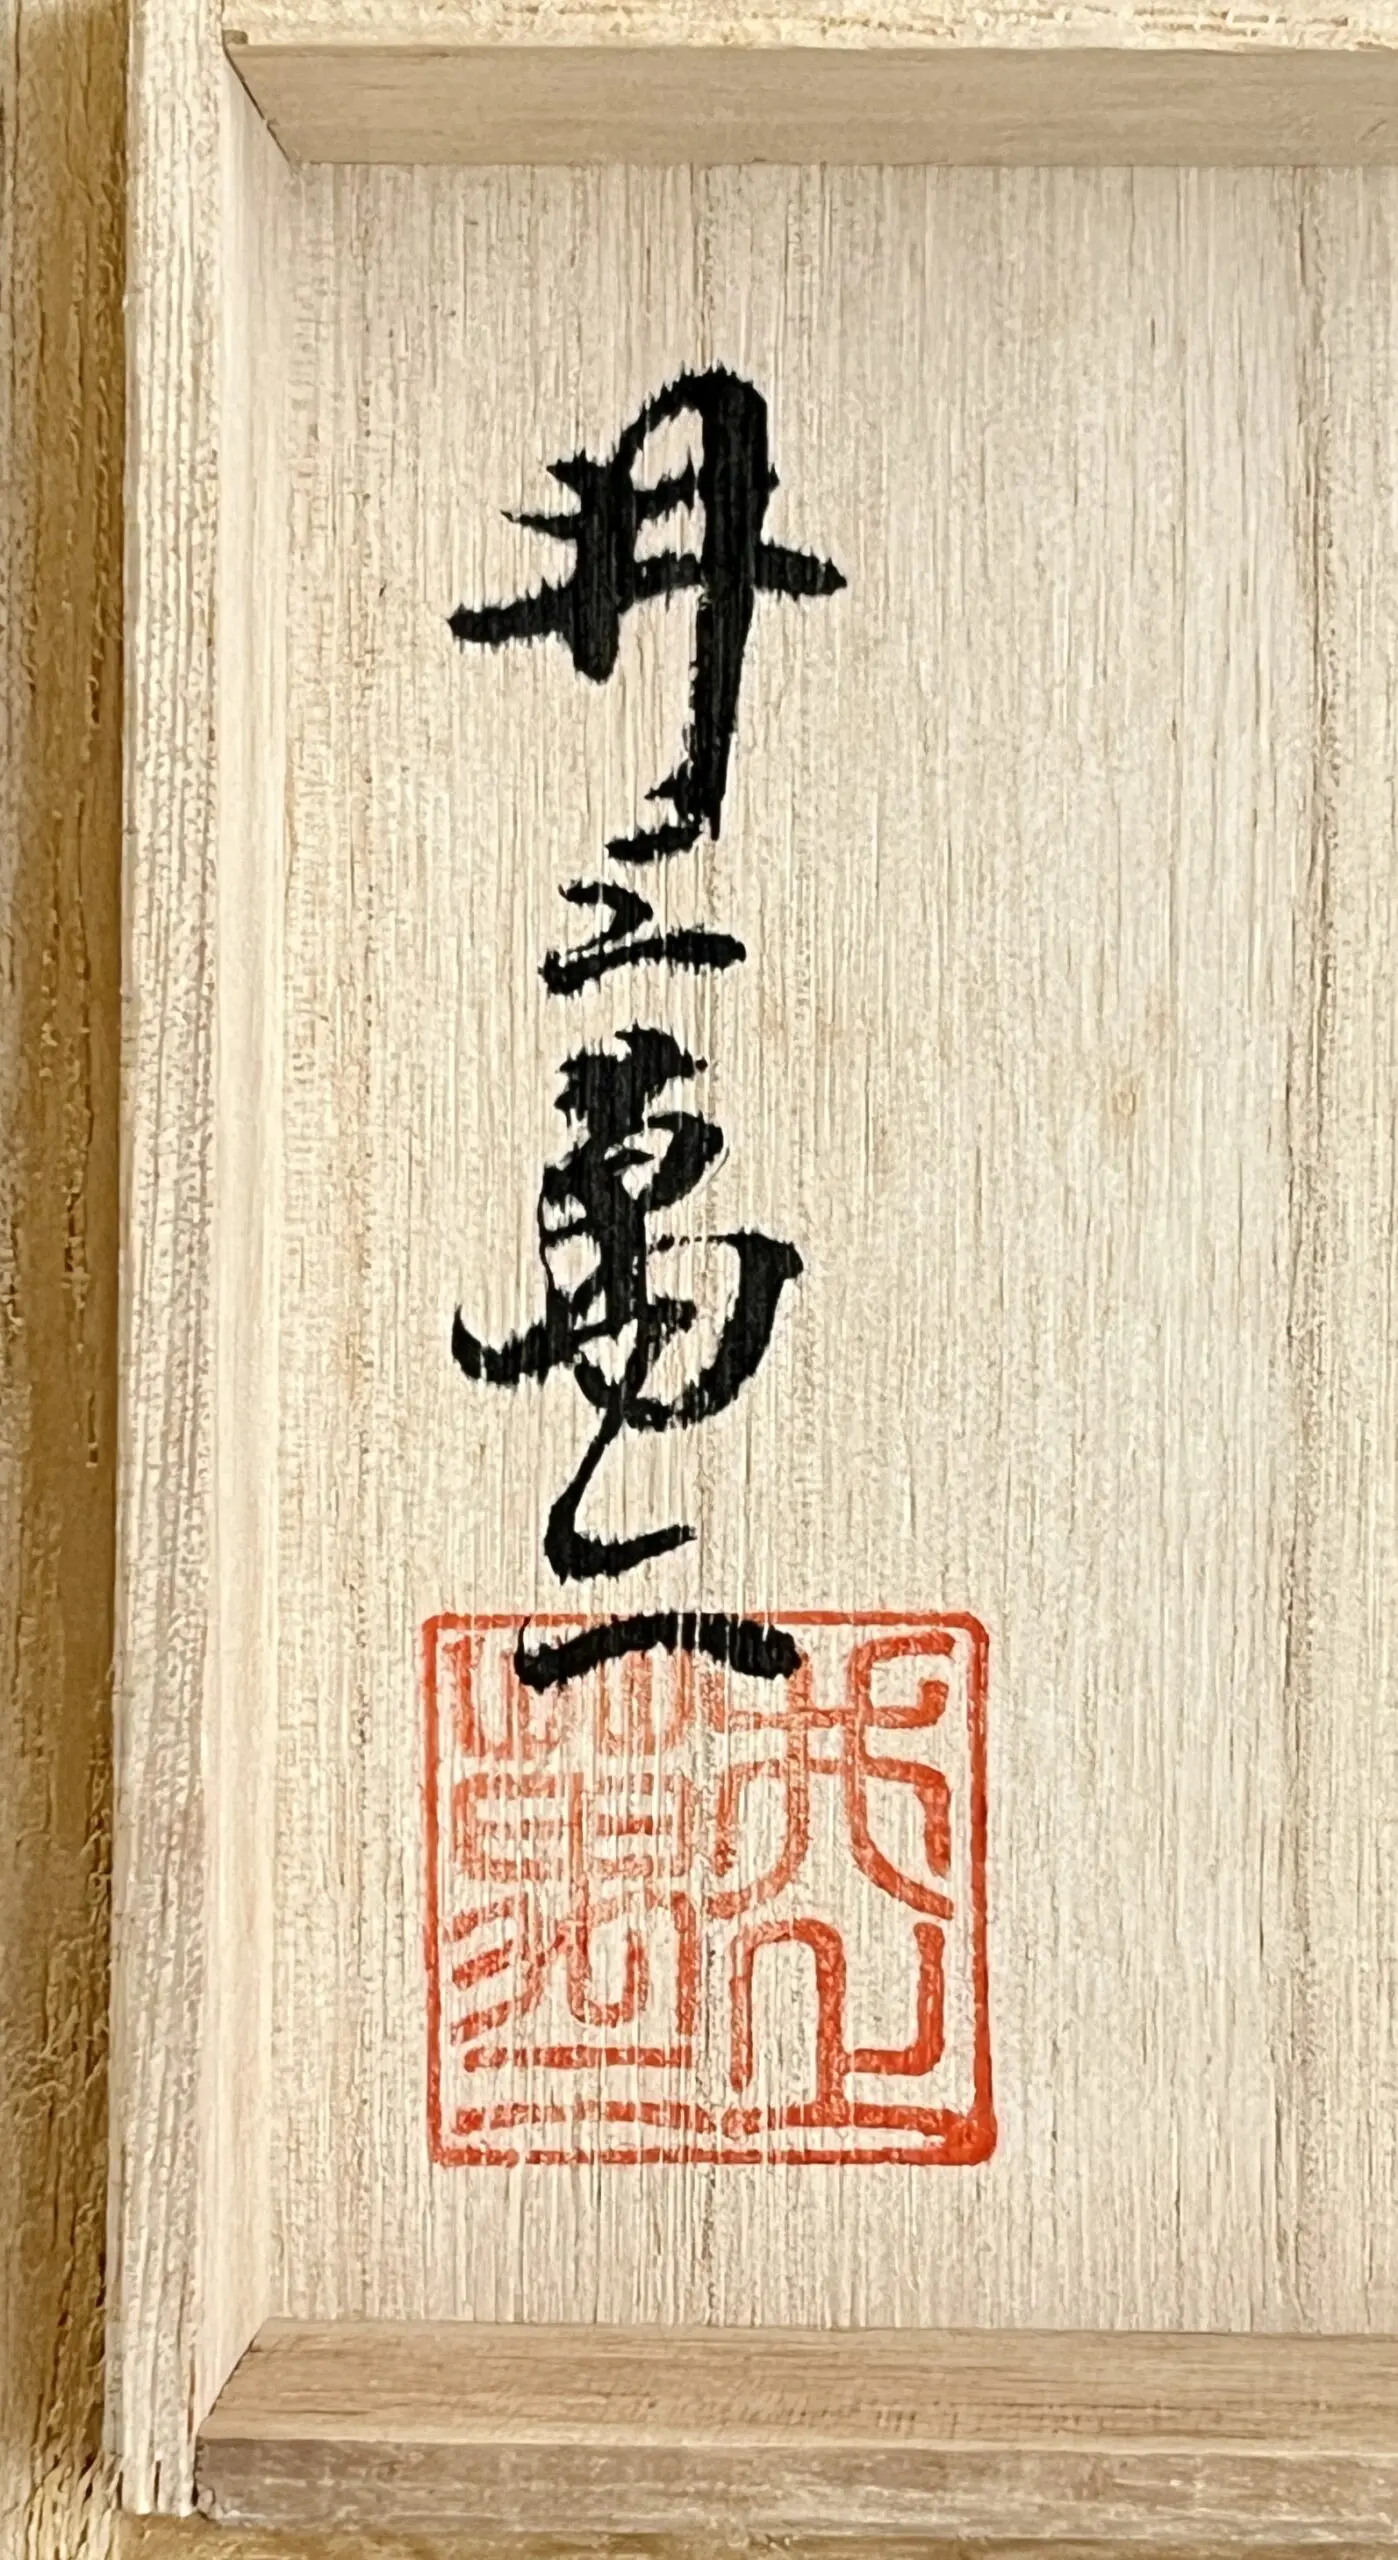 井上萬二